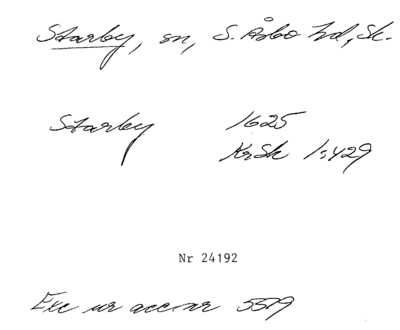 Starby, sn, S. Åsbo hd, Sk.
Starby 1625
KrSk 1:429
Nr 24192
Exc ur acc.nr 5519